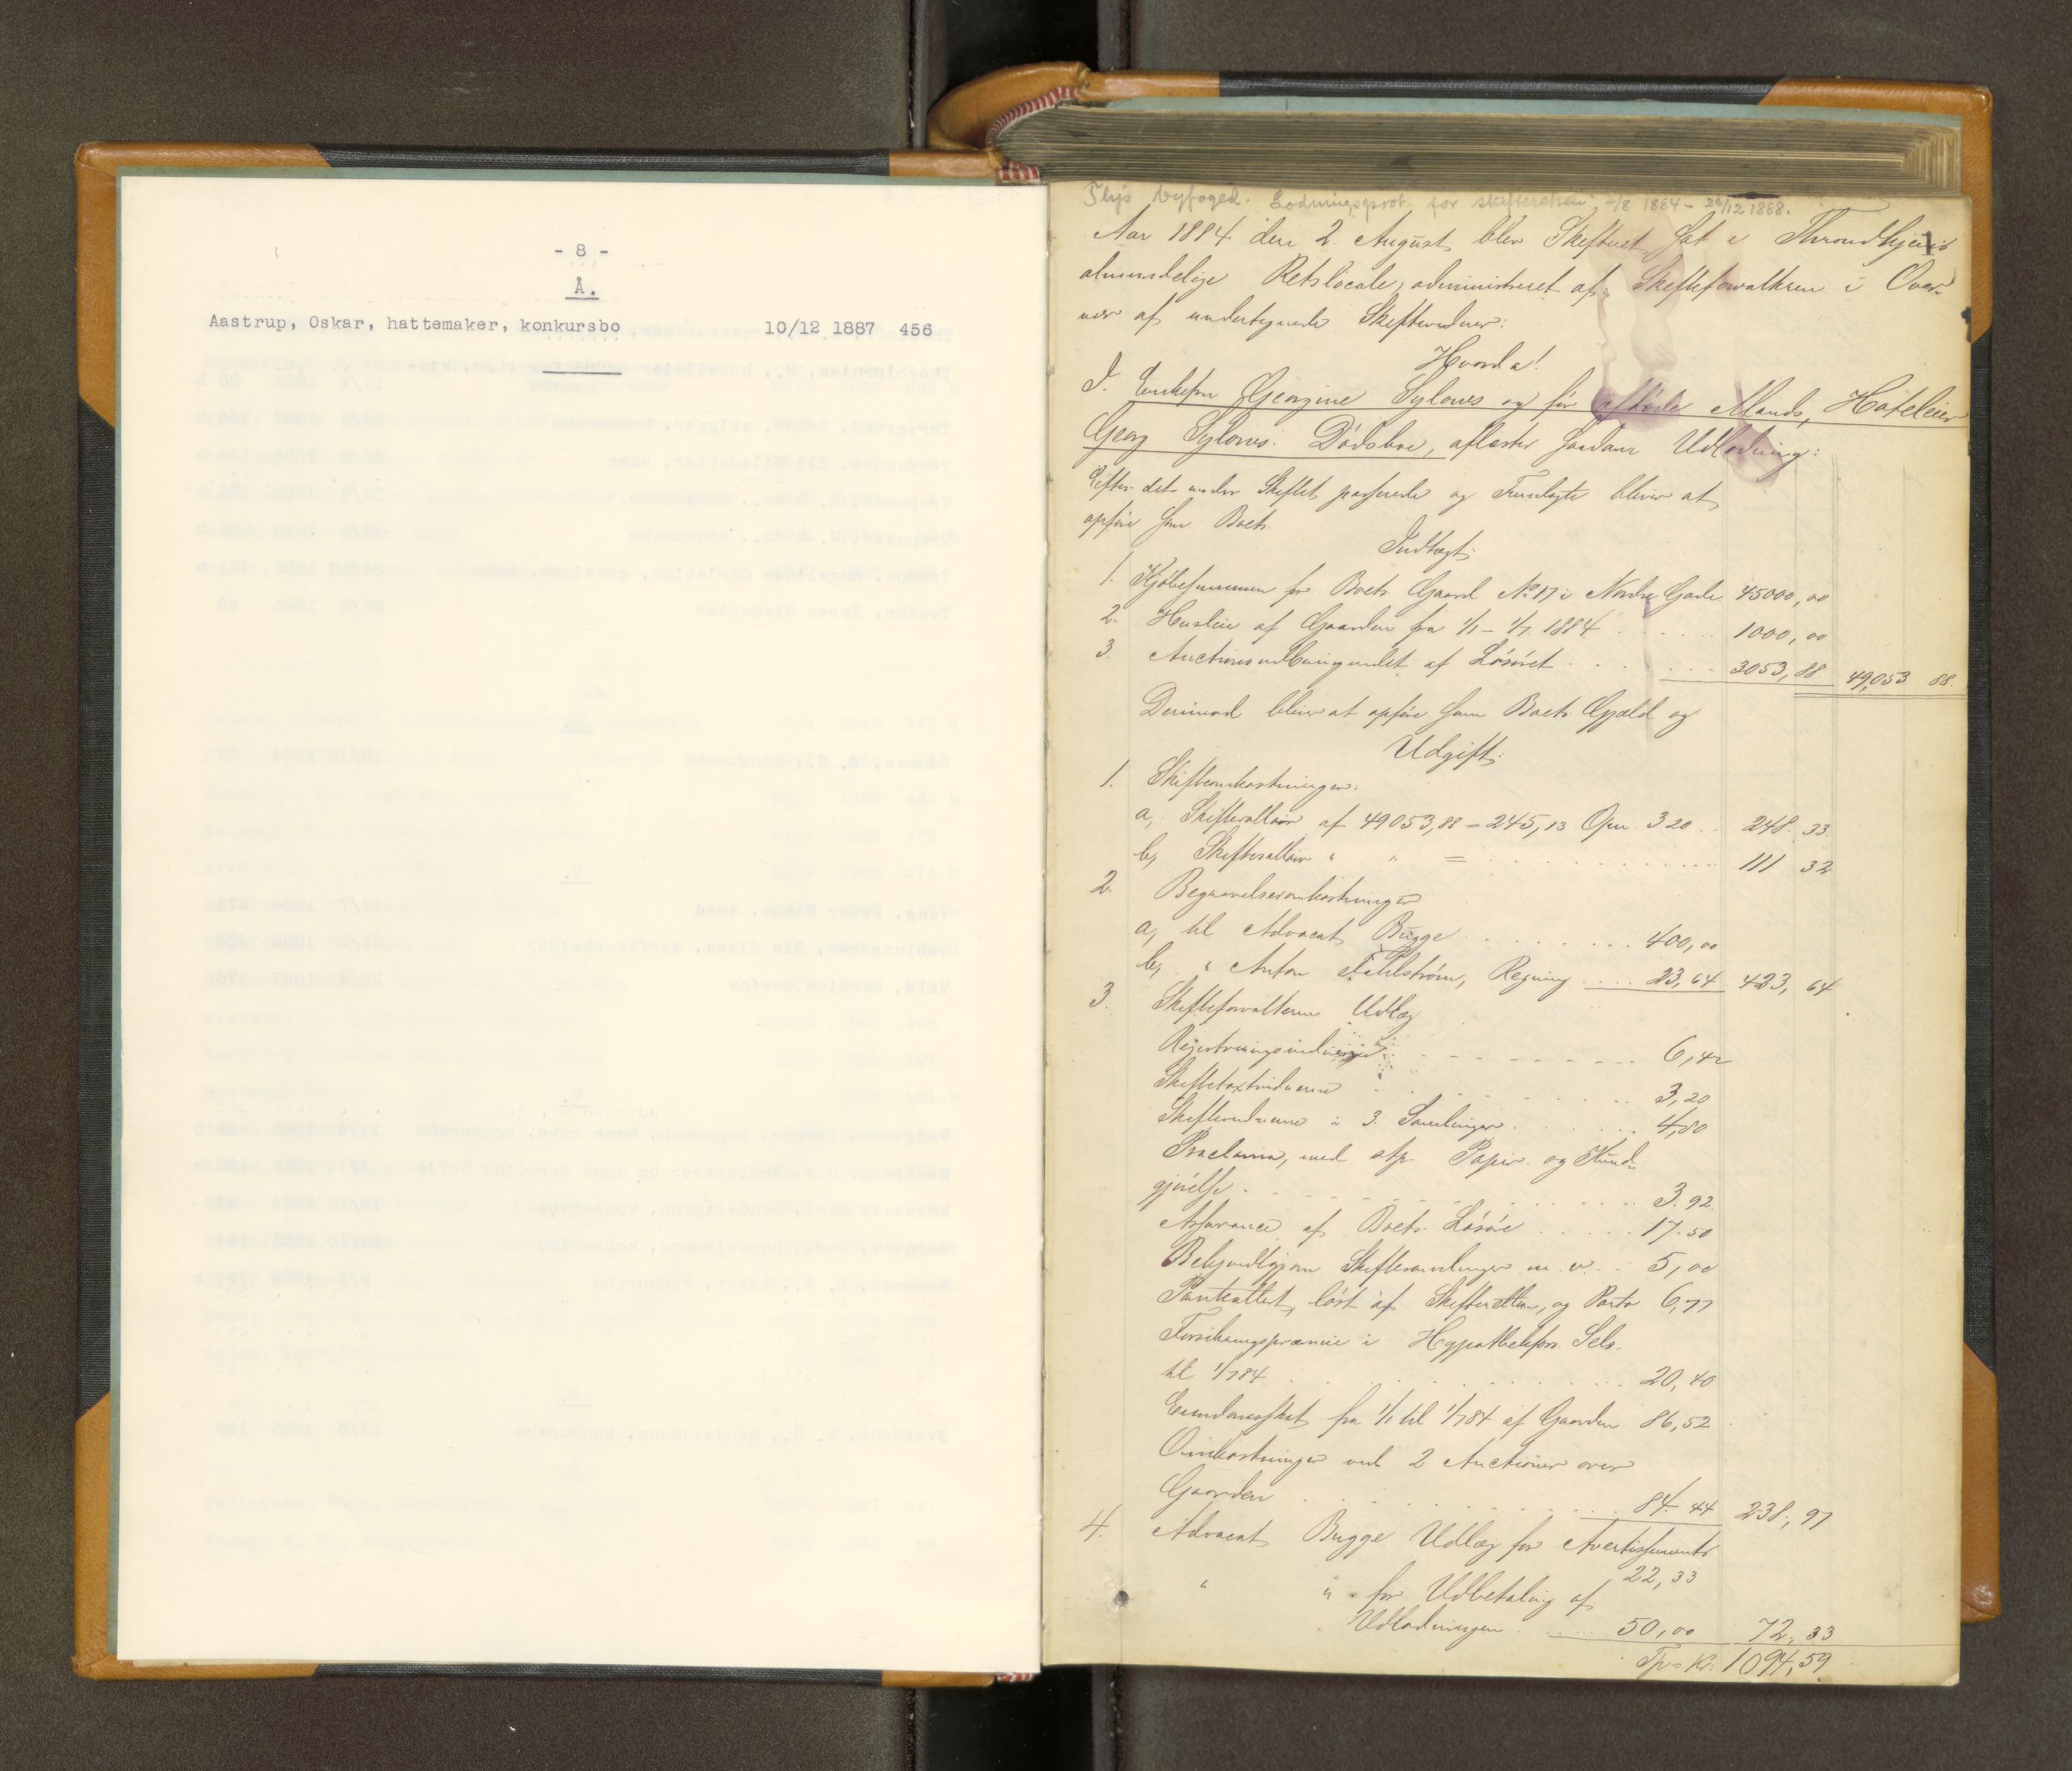 - 8 -
Å.
Aastrup, Oskar, hattemaker, konkursbo 10/12 1887 456
byfoged. Lodningsprot. for skifteretten 2/8 1884 - 28/12 1888.
1
Aar 1884 den 2. August blev Skifteret sat i Throndhjems
almindelige Retslocale, administreret af Skifteforvalteren i Over-
vær af undertegnede Skiftevidner:
Hvorda!
I. Enkefru Georgine Sylows og før afdøde Mands, Hoteleier
Georg Sylows Dödsboe, aflæstes saadan Udlodning:
Efter det under Skiftet passerede og Fremlagte bliver at
opføre som Boets
Indtægt:
1. Kjöbesummen for Boets Gaard No 17 i Nordre Gade 45000,00
2. Husleie af Gaarden fra 1/1 - 1/7 1884 1000,00
3. Auctionsudbringendet af Lösöret 3053,88 49,053 88.
Derimod bliver at opføre som Boets Gjæld og
Udgift:
1. Skifteomkostninger:
a, Skiftesallair af 49053,88 = 245,13 Opr. 3 20 248. 33.
b, Skiftesallair " " = 111 32
2. Begravelsesomkostninger
a, til Advocat Bugge 400,00
b, " Anton Fahlström, Regning 23,64 423,64
3. Skifteforvalterens Udlæg
Registreringsvidnerne 6,42
Skiftetaxtvidnerne 3,20
Skiftevidnerne i 3 Samlinger 4,80
Proclama, med stp. Papir og Kund-
gjörelse 3.92
Assurance af Boets Lösöre 17.50
Bekjendtgjøren Skiftesamlinger m. v. 5,00
Panteattest, löst af Skifteretten, og Porto 6,77
Forsikringspræmie i Hypothekfor. Sels.
til 1/7 84 20,40
Eiendomsskat fra 1/1 til 1/7 84 af Gaarden 86,52
Omkostninger ved 2 Auctioner over
Gaarden 84.44 238,97
4. Advocat Bugge Udlæg for Avertissements
22,33
" " for Udbetaling af
Udlodningen 50,00 72,33
Tp = Kr: 1094,59